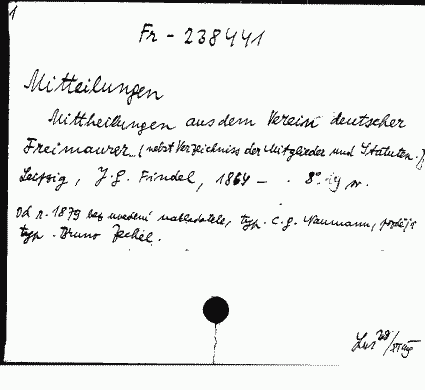 1
Fr - 238441
Mitteilungen
Mittheilungen aus dem Verein deutscher
Freimaurer. (nebst Verzeichniss der Mitglieder und Statuten.)
Leipzig, J. G. Findel, 1864 - . 8°.
Od r. 1879 bez uvedení nakladatele, typ. C. G. Naumann, později
typ. Bruno Zechel.